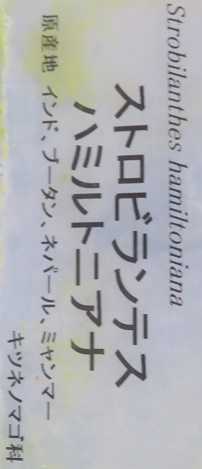 Strobilanthes hamiltoniana
ストロビランテス
ハミルトニアナ
原産地 インド、ブータン、ネパール、ミャンマー
キツネノマゴ科